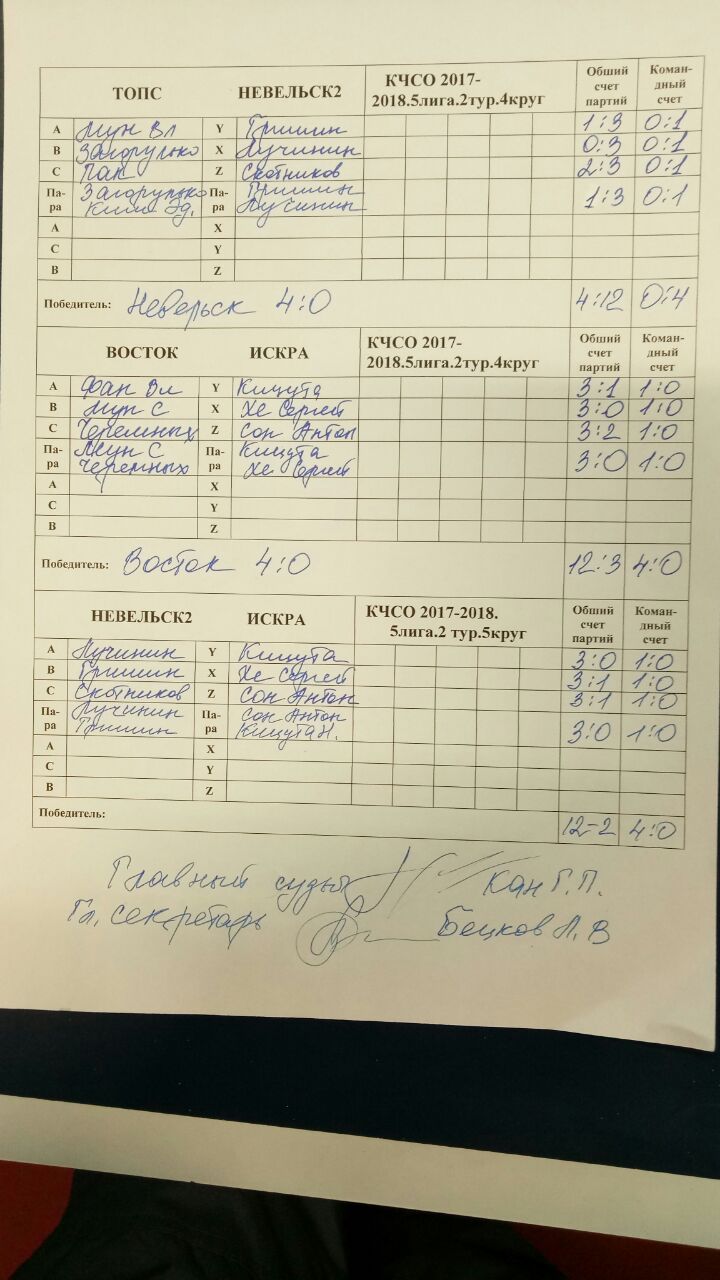 ТОПС НЕВЕЛЬСК2 КЧСО 2017-2018.5лига.2тур.4круг Общий счет партий Коман-дный счет
A Мун Вл Y Гришин 1:3 0:1
B Загорулько X Лучинин 0:3 0:1
C Пак Z Скотников 2:3 0:1
Па-ра Загорулько Па-ра Гришин 1:3 0:1
Ким Эд. Лучинин
A X
C Y
B Z
Победитель: Невельск 4:0 4:12 0:4
ВОСТОК ИСКРА КЧСО 2017-2018.5лига.2тур.4круг Общий счет партий Коман-дный счет
A Фан Вл Y Кицута 3:1 1:0
B Мун С X Хе Сергей 3:0 1:0
C Черемных Z Сон Антон 3:2 1:0
Па-ра Мун С Па-ра Кицута 3:0 1:0
Черемных Хе Сергей
A X
C Y
B Z
Победитель: Восток 4:0 12:3 4:0
НЕВЕЛЬСК2 ИСКРА КЧСО 2017-2018. 5лига.2 тур.5круг Общий счет партий Коман-дный счет
A Лучинин Y Кицута 3:0 1:0
B Гришин X Хе Сергей 3:1 1:0
C Скотников Z Сон Антон 3:1 1:0
Па-ра Лучинин Па-ра Сон Антон 3:0 1:0
Гришин Кицута Н.
A X
C Y
B Z
Победитель: 12-2 4:0
Главный судья Кан Г.П.
Гл. секретарь Бецков А. В